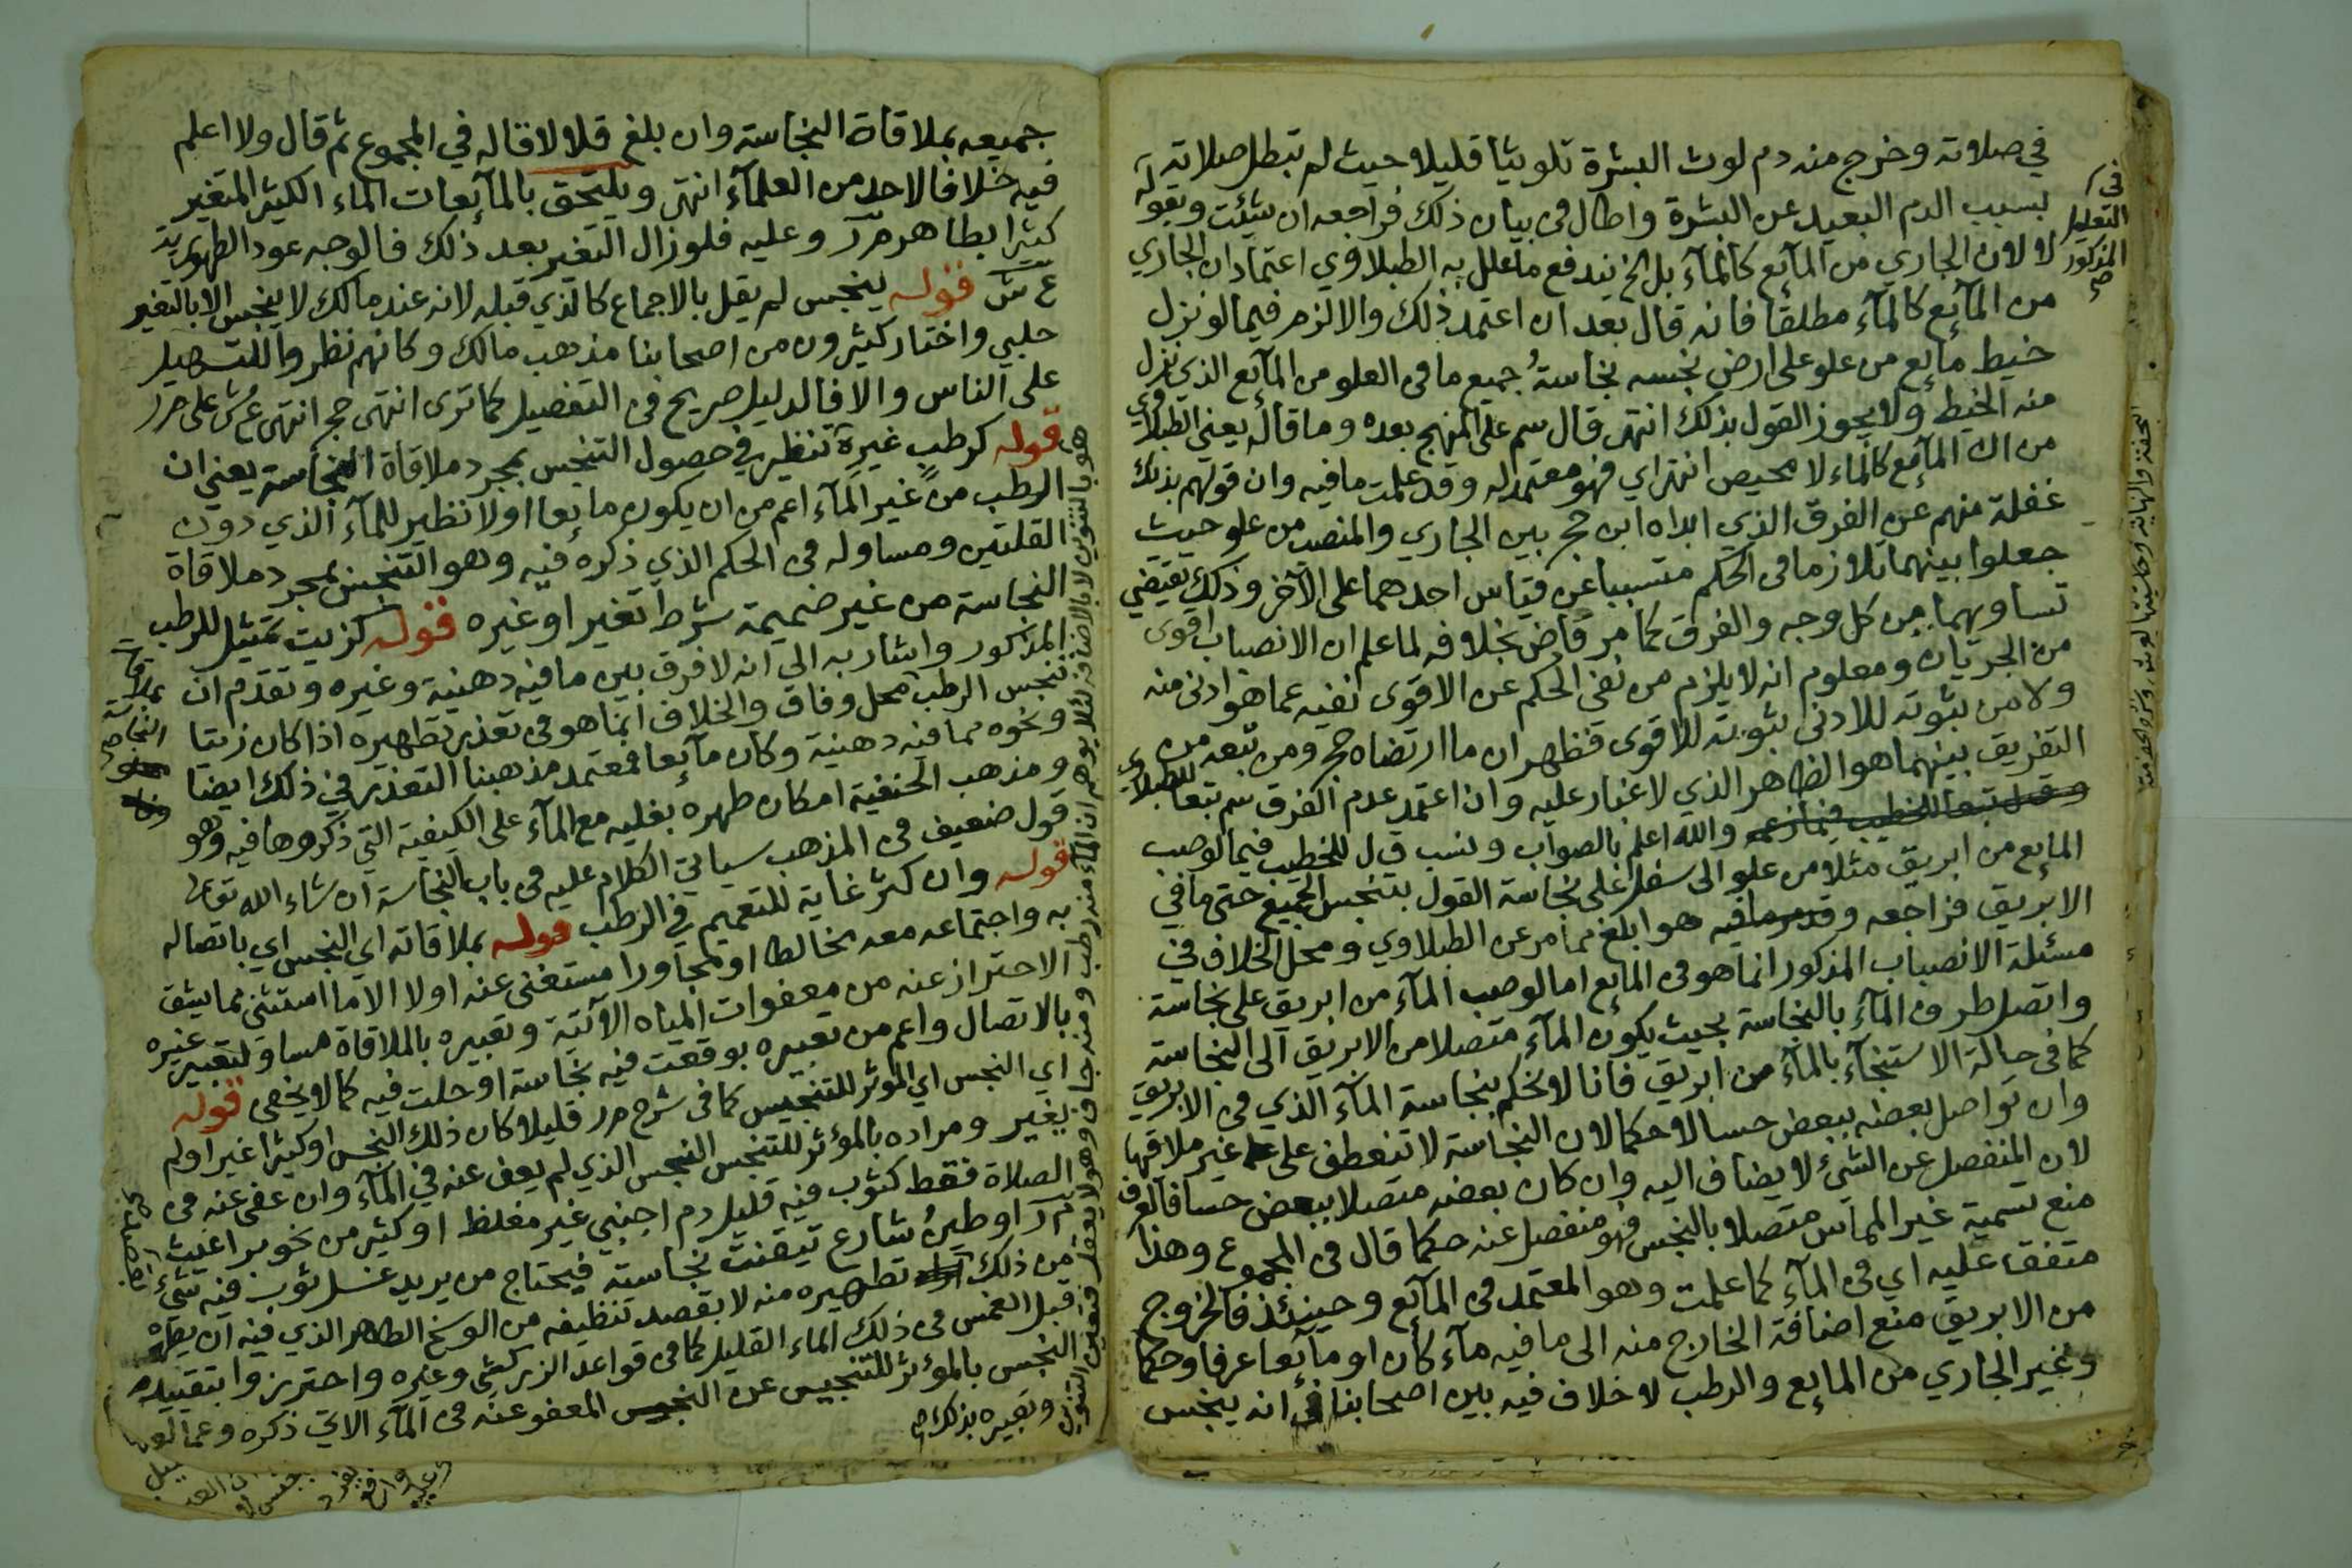 في صلاته وخرج منه دم لوث البشرة تلويثا قليلا حيث لم تبطل صلاته
بسبب الدم البعيد عن البشرة واطال في بيان ذلك فراجعه ان شئت وبقوله
لا لان الجاري من المآئع كالمآء بل الخ يندفع ما علل به الطبلاوي اعتماد ان الجاري
من المآئع كالمآء مطلقا فانه قال بعد ان اعتمد ذلك والا لزم فيما لو نزل
خيط مائع من علو على ارض نجسه نجاسةُ جميع ما في العلو من المآئع الذي نزل
منه الخيط ولا يجوز القول بذلك انتهى قال سم على المنهج بعده وما قاله يعني الطبلاوي
من ان المآئع كالماء لا محيص انتهى اي فهو معتمد له وقد علمت ما فيه وان قولهم بذلك
غفلة منهم عن الفرق الذي ابداه ابن حج بين الجاري والمنصب من علو حيث
جعلوا بينهما تلازما في الحكم متسببا عن قياس احدهما على الآخر وذلك يقتضي
تساويهما من كل وجه والفرق كما مر قاض بخلافه لما علم ان الانصباب اقوى
من الجريان ومعلوم انه لا يلزم من نفي الحكم عن الاقوى نفيه عما هو ادنى منه
ولا من ثبوته للادنى ثبوته للاقوى فظهر ان ما ارتضاه حج ومن تبعه من
التفريق بينهما هو الظاهر الذي لا غبار عليه وان اعتمد عدم الفرق سم تبعا للطبلاوي
والله اعلم بالصواب ونسب ق ل للخطيب فيما لو صب
المايع من ابريق مثلا من علو الى سفل على نجاسة القول بتنجس الجميع حتى ما في
الابريق فراجعه وقد مر ما فيه هو ابلغ مما مر عن الطبلاوي ومحل الخلاف في
مسئلة الانصباب المذكور انما هو في المايع اما لو صب المآء من ابريق على نجاسة
واتصل طرف المآء بالنجاسة بحيث يكون المآء متصلا من الابريق الى النجاسة
كما في حالة الاستنجآء بالمآء من ابريق فانا لا نحكم بنجاسة المآء الذي في الابريق
وان تواصل بعضه ببعض حسا لا حكما لان النجاسة لا تنعطف على غير ملاقيها
لان المنفصل عن الشيء لا يضاف اليه وان كان بعضه متصلا ببعض حسا فالعرف
منع تسمية غير المماس متصلا بالنجس فهو منفصل عنه حكما قال في المجموع وهذا
متفق عليه اي في المآء كما علمت وهو المعتمد في المآئع وحينئذ فالخروج
من الابريق منع اضافة الخارج منه الى ما فيه مآء كان او مآئعا عرفا وحكما
وغير الجاري من المايع والرطب لا خلاف فيه بين اصحابنا في انه ينجس
في التعليل
المذكور
صح
جميعه بملاقاة النجاسة وان بلغ قلالا قاله في المجموع ثم قال ولا اعلم
فيه خلافا لاحد من العلمآء انتهى ويلتحق بالمآئعات الماء الكثير المتغير
كثيرا بطاهر م ر وعليه فلو زال التغير بعد ذلك فالوجه عود الطهورية
ع ش قوله ينجس لم يقل بالاجماع كالذي قبله لانه عند مالك لا ينجس الا بالتغير
حلبي واختار كثيرون من اصحابنا مذهب مالك وكانهم نظروا للتسهيل
على الناس والا فالدليل صريح في التفصيل كما ترى انتهى حج انتهى ع ش على م ر
قوله كرطب غيره تنظير في حصول التنجس بمجرد ملاقاة النجاسة يعني ان
الرطب من غير المآء اعم من ان يكون مايعا اولا نظير للمآء الذي دون
القلتين ومساو له في الحكم الذي ذكره فيه وهو التنجس بمجرد ملاقاة
النجاسة من غير ضميمة شرط تغير او غيره قوله كزيت تمثيل للرطب
المذكور واشار به الى انه لا فرق بين ما فيه دهنية وغيره وتقدم ان
تنجس الرطب محل وفاق والخلاف انما هو في تعذر تطهيره اذا كان زيتا
ونحوه مما فيه دهنية وكان مآئعا فمعتمد مذهبنا التعذر في ذلك ايضا
ومذهب الحنفية امكان طهره بغليه مع المآء على الكيفية التي ذكروها فيه وهو
قول ضعيف في المذهب سياتي الكلام عليه في باب النجاسة ان شاء الله تعالى
قوله وان كثر غاية للتعميم في الرطب قوله بملاقاته اي النجس اي باتصاله
به واجتماعه معه مخالطا او مجاورا مستغنى عنه اولا الا ما استثني مما يشق
الاحتراز عنه من معفوات المياه الآتية وتعبيره بالملاقاة مساو لتعبير غيره
بالاتصال واعم من تعبيره بوقعت فيه نجاسة او حلت فيه كما لا يخفى قوله
اي النجس اي الموثر للتنجيس كما في شرح م ر قليلا كان ذلك النجس او كثيرا غير اولم
يغير ومراده بالمؤثر للتنجس النجس الذي لم يعف عنه في المآء وان عفي عنه في
الصلاة فقط كثوب فيه قليل دم اجنبي غير مغلظ او كثير من نحو براغيث
م ر او طين شارع تيقنت نجاسته فيحتاج من يريد غسل ثوب فيه شيء
من ذلك تطهيره منه لا بقصد تنظيفه من الوسخ الطاهر الذي فيه ان يطهره
قبل الغمس في ذلك الماء القليل كما في قواعد الزركشي وغيره واحترزوا بتقييدهم
النجس بالمؤثر للتنجيس عن النجس المعفو عنه في المآء الاتي ذكره وعما لو
وتعبيره بذلك
بملاقاة
النجاسة
صح
هو بالتنوين لا بالاضافة لئلا يوهم ان المآء منه رطب ومنه جاف وهو لا يعقل فتعين التنوين